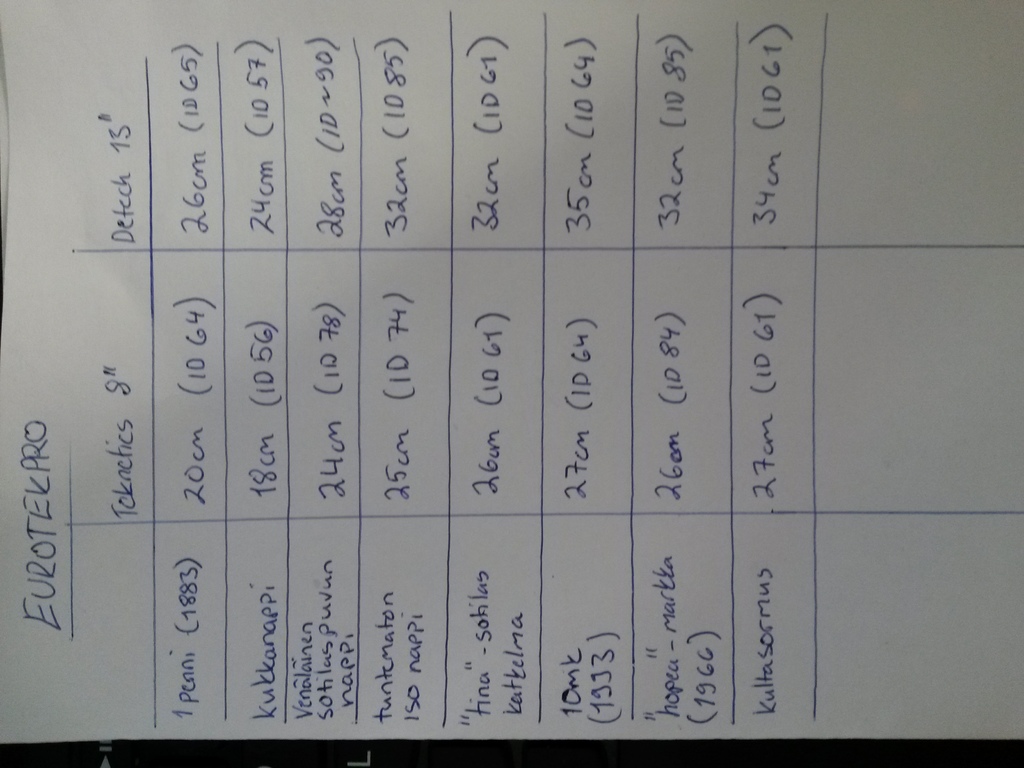 EUROTEKPRO
Teknetics 8" Detech 13"
1 penni (1883) 20cm (ID 64) 26cm (ID 65)
kukkanappi 18cm (ID 56) 24cm (ID 57)
Venäläinen
sotilaspuvun 24cm (ID 78) 28cm (ID ~90)
nappi
tuntematon 25cm (ID 74) 32cm (ID 85)
iso nappi
"tina"-sotilas 26cm (ID 61) 32cm (ID 61)
katkelma
10mk 27cm (ID 64) 35cm (ID 64)
(1933)
"hopea"-markka 26cm (ID 84) 32cm (ID 85)
(1966)
kultasormus 27cm (ID 61) 34cm (ID 61)
L